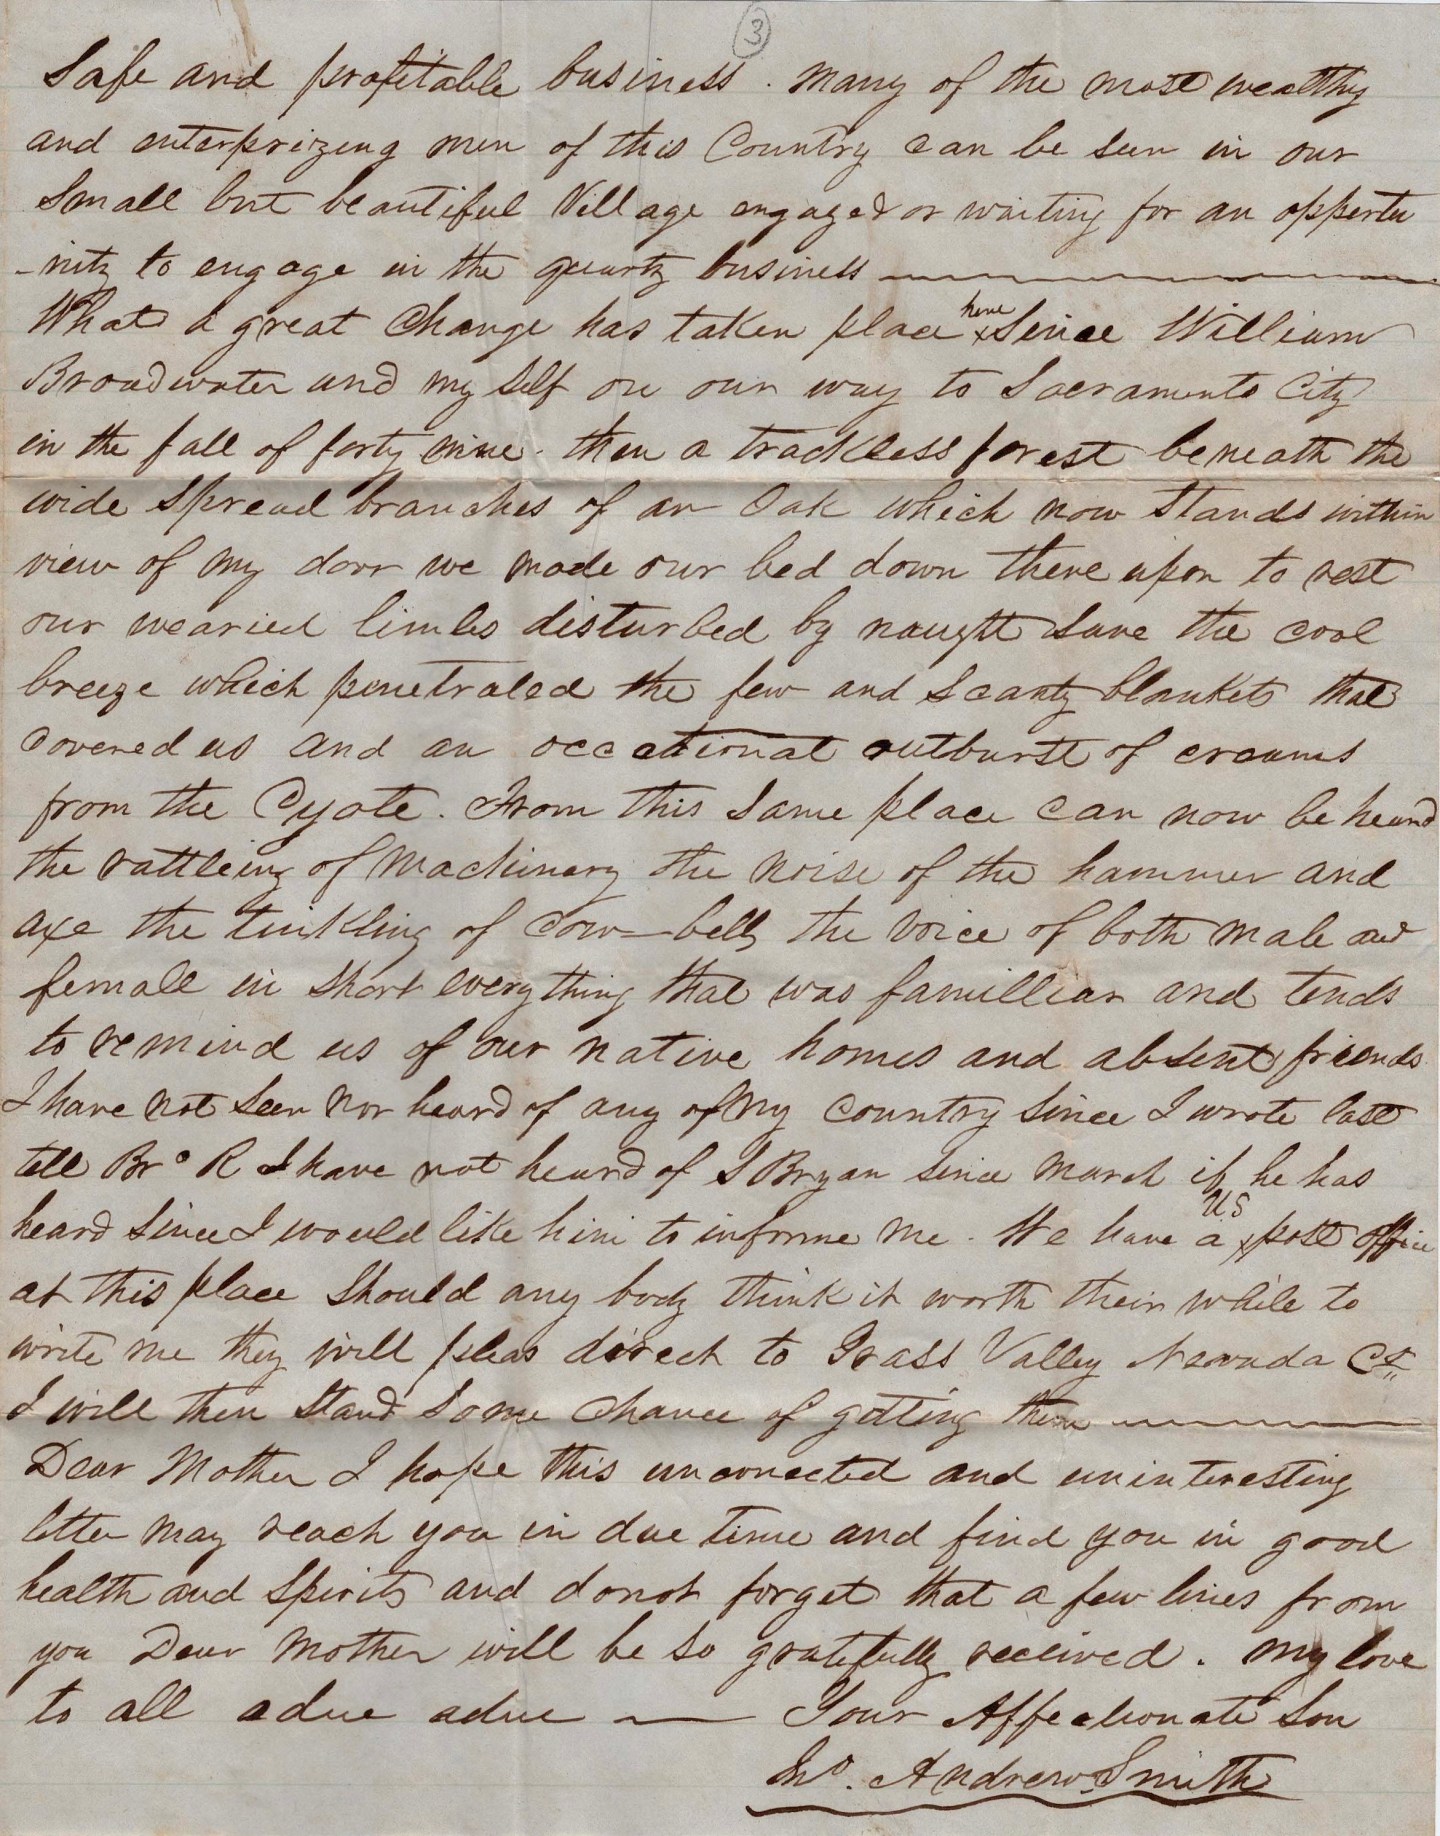 3
Safe and profitable business. Many of the most wealthy
and enterprizing men of this Country can be seen in our
Small but beautiful Village engaged or waiting for an opportu
-nity to engage in the quartz business
What a great Change has taken place here x Since William
Broadwater and my Self on our way to Sacramento City
in the fall of forty nine. then a trackless forest beneath the
wide spread branches of an Oak which now Stands within
view of my door we made our bed down there upon to rest
our wearied limbs disturbed by naught Save the cool
breeze which penetrated the few and Scanty blankets that
Covered us and an occational outburst of
from the Cyote. From this Same place can now be heard
the rattleing of Machinery the noise of the hammer and
axe the tinkling of Cow-bells the Voice of both Male and
female in Short everything that was familliar and tends
to remind us of our native homes and absent friends
I have not Seen nor heard of any of My Country Since I wrote last
tell Bro R I have not heard of S Bryan Since March if he has
heard Since I would like him to informe me. We have a x U.S post office
at this place Should any body think it worth their while to
write me they will pleas direct to Grass Valley Nevada Ct
I will then Stand Some Chance of getting them
Dear Mother I hope this unconnected and uninteresting
letter may reach you in due time and find you in good
health and Spirits and do not forget that a few lines from
you Dear Mother will be so gratefully received. My love
to all adue adue — Your Affectionate Son
Jno. Andrew Smith